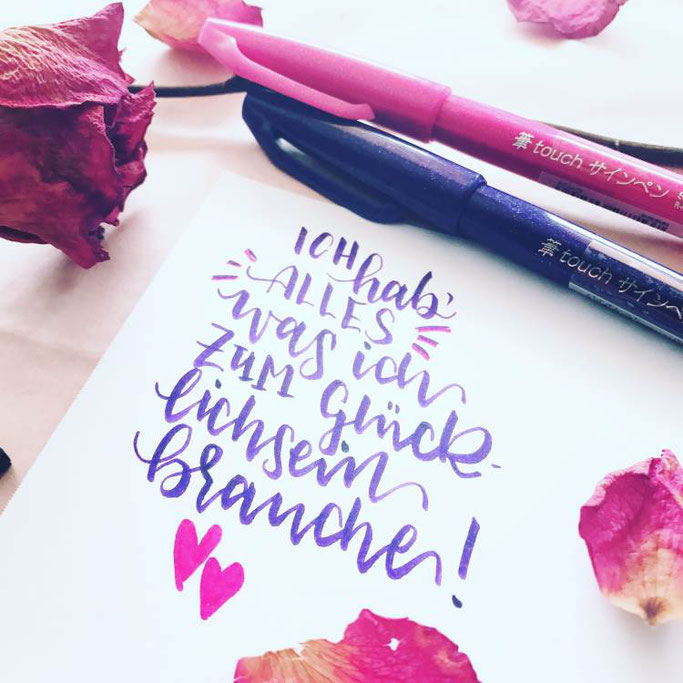 筆touch サインペン
筆touch サインペン
ICH hab'
ALLES
was ich
ZUM Glück-
lichsein
brauche!